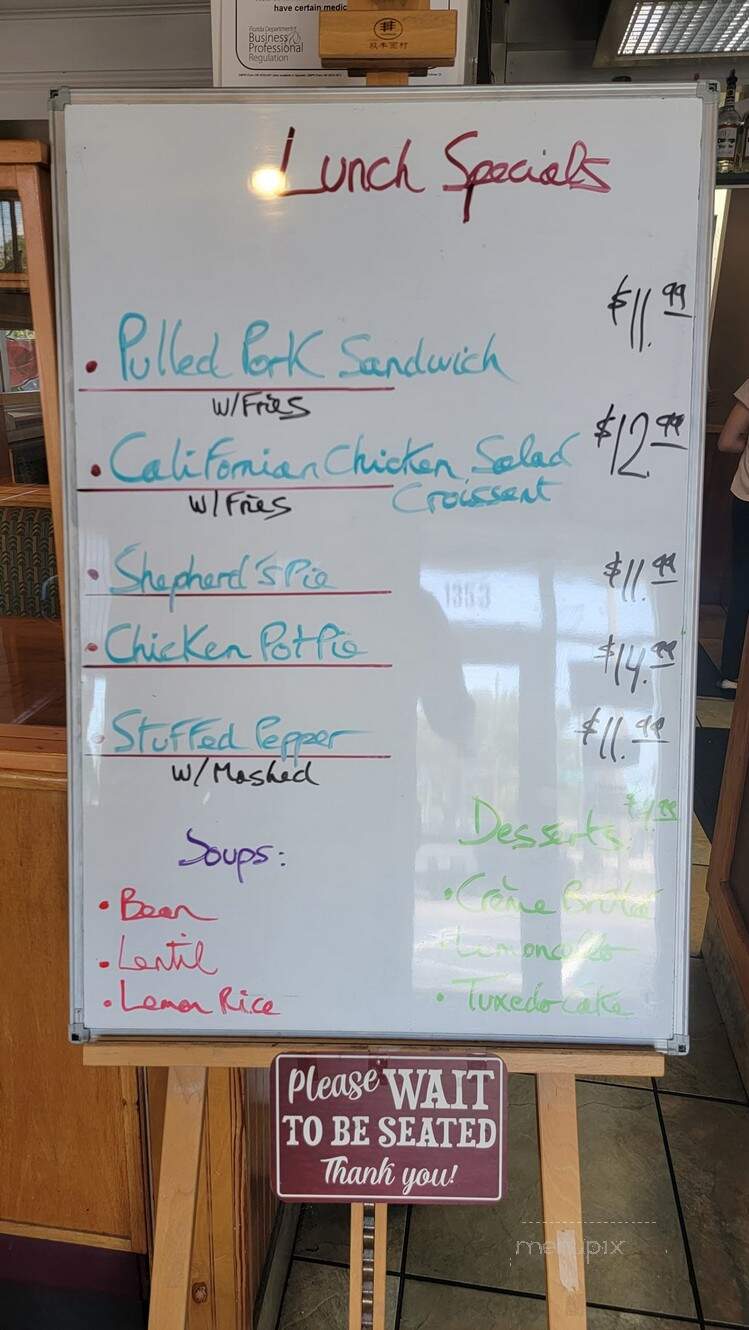 have certain medic
Florida Department of
Business
Professional
Regulation
Lunch Specials
• Pulled Pork Sandwich $11.99
w/Fries
• Californian Chicken Salad $12.99
w/Fries Croissent
• Shepherd's Pie $11.99
• Chicken Pot Pie $14.99
• Stuffed Pepper $11.99
w/Mashed
Desserts: $4.99
Soups:
• Bean
• Lentil
• Lemon Rice
• Crème Brûlée
• Limoncello
• Tuxedo Cake
1353
Please WAIT
TO BE SEATED
Thank you!
menupix